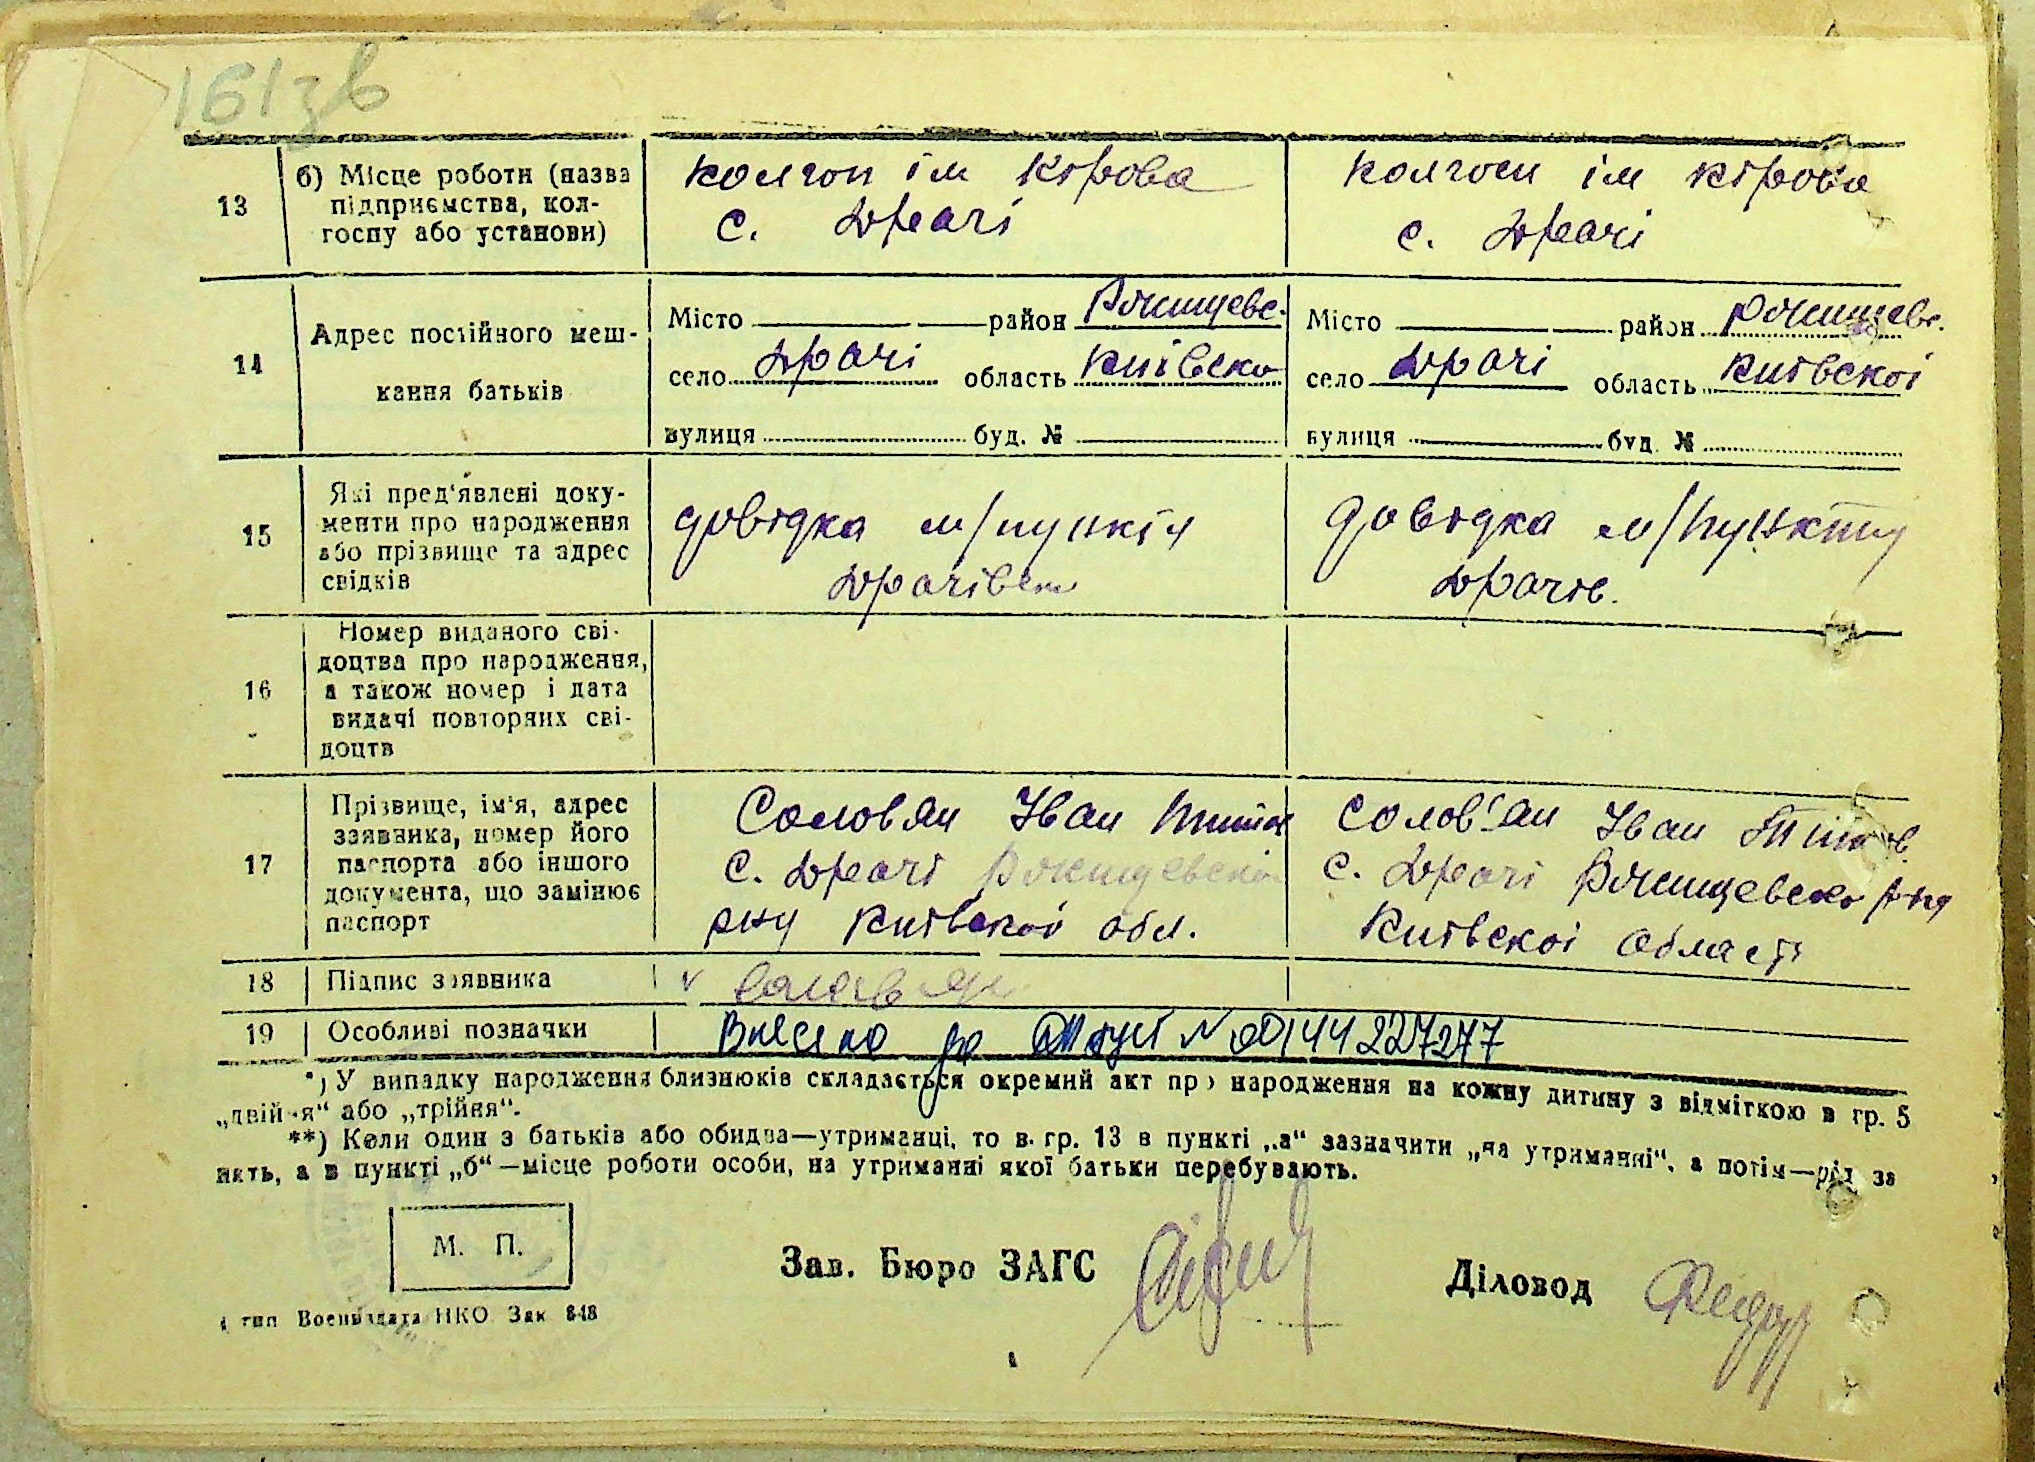 161зв
13
б) Місце роботи (назва
підприємства, кол-
госпу або установи)
колгоп ім Кірова
с. Драчі
колгосп ім Кірова
с. Драчі
14
Адрес постійного меш-
кання батьків
Місто район Ржищевс.
село Драчі область Київско
вулиця буд. №
Місто район Ржищевс.
село Драчі область Київскоі
вулиця буд. №
15
Які пред'явлені доку-
менти про народження
або прізвище та адрес
свідків
довідка м/пункт
Драчівск
довідка м/пункту
Драчів.
16
Номер виданого сві-
доцтва про народження,
а також номер і дата
видачі повторних сві-
доцтв
17
Прізвище, ім'я, адрес
заявника, номер його
паспорта або іншого
документа, що замінює
паспорт
Соловян Іван
с. Драчі Ржищевскоі
рну Київскоі обл.
Солов'ян Іван
с. Драчі Ржищевско р-ну
Київскоі області
18
Підпис заявника
v Солов'ян
19
Особливі позначки
Внесено до ДРАЦС № 00144227277
*) У випадку народження близнюків складається окремий акт про народження на кожну дитину з відміткою в гр. 5
„двійня“ або „трійня“.
**) Коли один з батьків або обидва—утриманці, то в гр. 13 в пункті „а“ зазначити „на утриманні“, а потім—рід за
нять, а в пункті „б“—місце роботи особи, на утриманні якої батьки перебувають.
М. П.
Зав. Бюро ЗАГС
Діловод
тип Воениздата НКО Зак 848